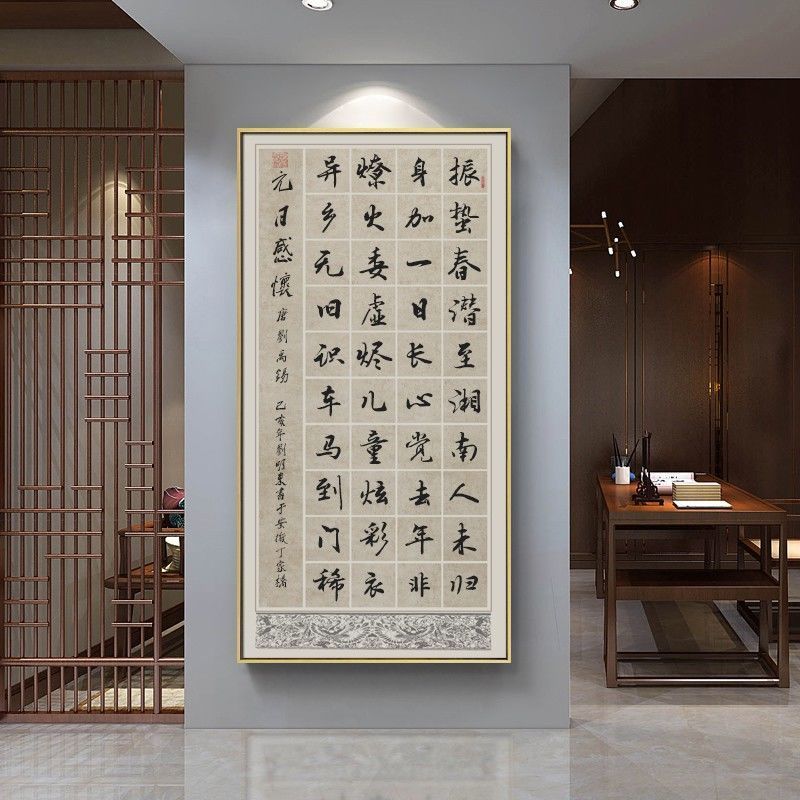 振蛰春潜至湘南人未归
身加一日长心觉去年非
燎火委虚烬儿童炫彩衣
异乡无旧识车马到门稀
元日感懷 唐劉禹錫 己亥年劉明
書于安徽丁家橋